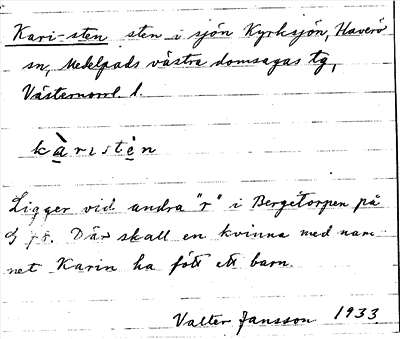 Kari-sten sten i sjön Kyrksjön, Haverö
sn, Medelpads västra domsagas tg,
Västernorrl l.
kàristèn
Ligger vid andra "r" i Bergetorpen på
Där skall en kvinna med nam
net Karin ha fött ett barn.
Valter Jansson 1933